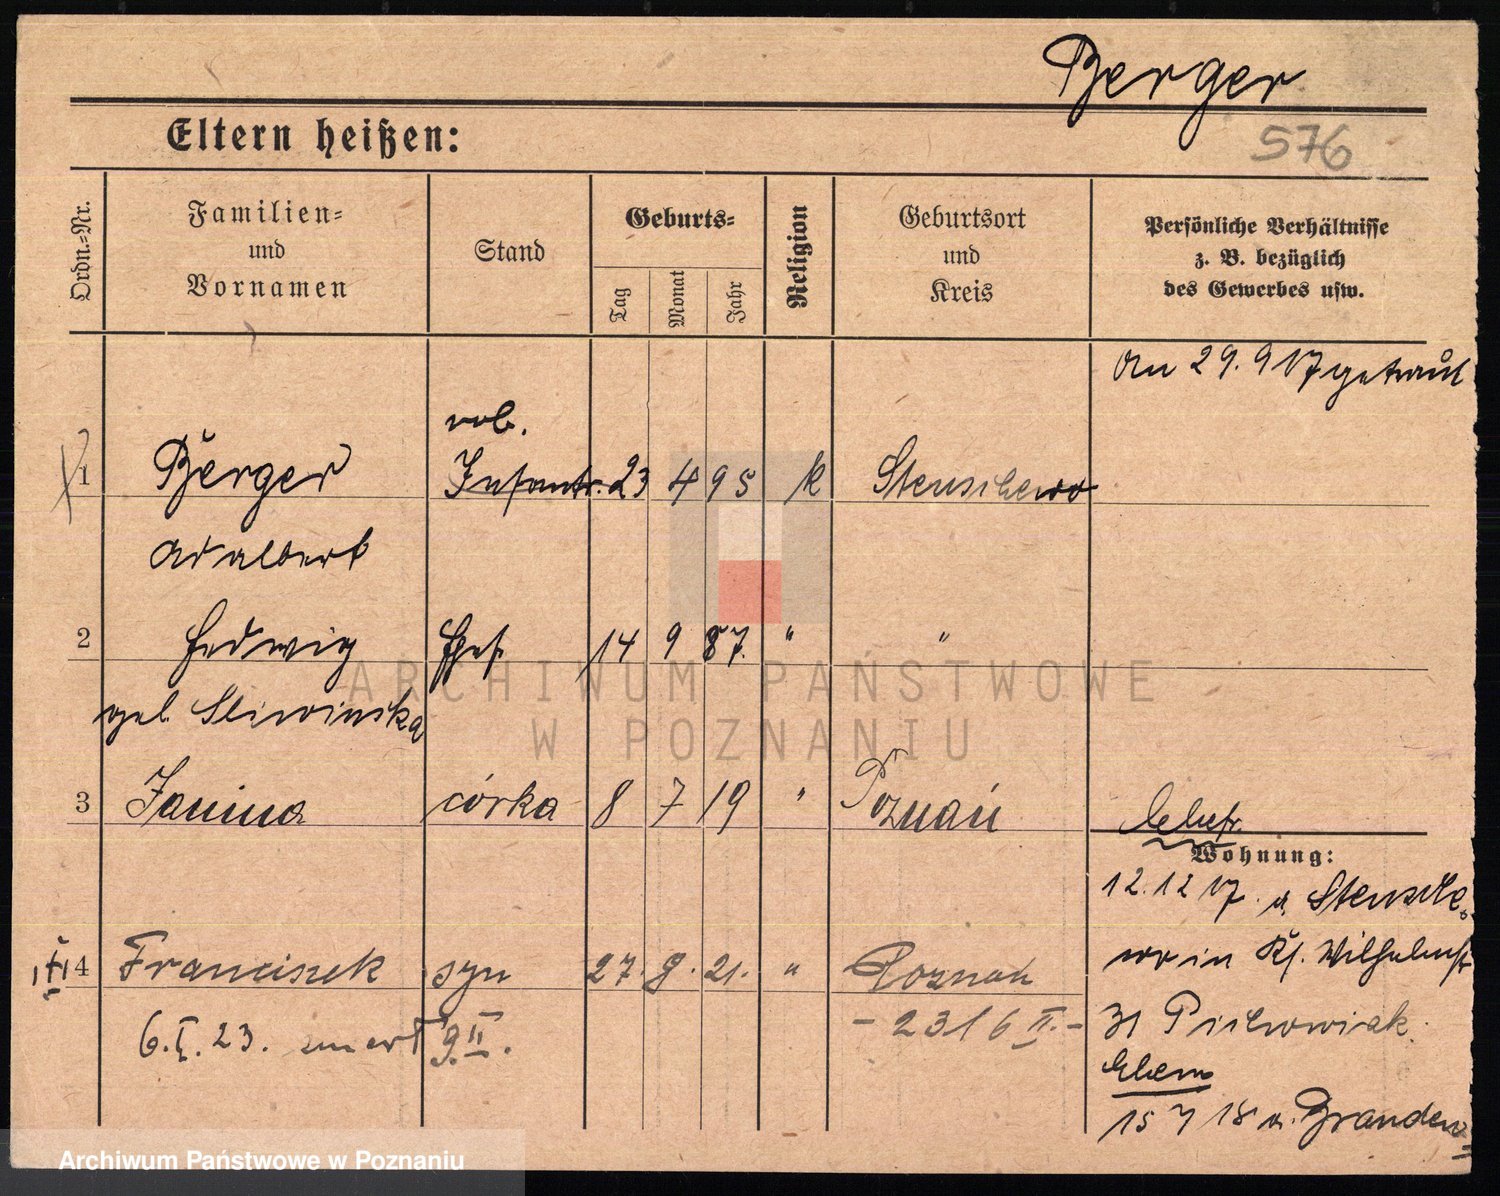 Berger
576
Eltern heißen:
Ordn.-Nr.
Familien-
und
Vornamen
Stand
Geburts-
Tag
Monat
Jahr
Religion
Geburtsort
und
Kreis
Persönliche Verhältnisse
z. B. bezüglich
des Gewerbes usw.
An 29. 9 17 getraut
1 Berger Infantr. 23 4 95 k Stenschewo
Adalbert
2 Hedwig Ehef. 14 9 87. " "
geb. Sliwinska
3 Janina córka 8 7 19 " Poznań
Wohnung:
12. 12 17. a. Stensche-
wo in Kl. Wilhelmstr
4 Franciszek syn 27. 9. 21. " Poznań
6. I. 23. umarł 9. II.
- 2316 II. -
31
15 7 18 a. Branden
ARCHIWUM PAŃSTWOWE
W POZNANIU
Archiwum Państwowe w Poznaniu